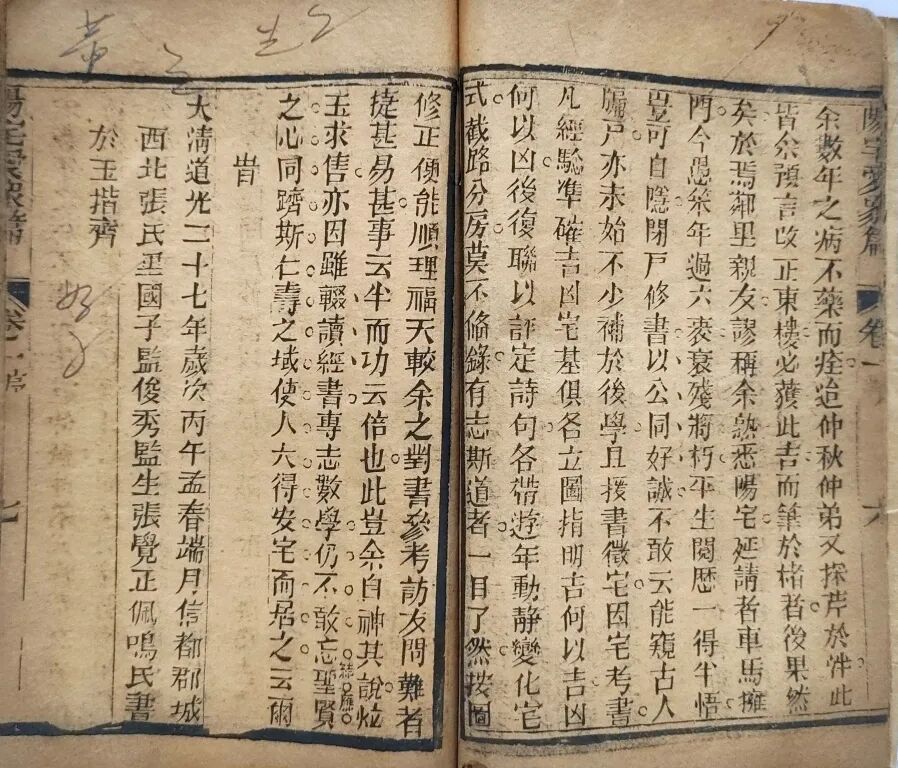 陽宅愛衆篇 卷一 六
余數年之病不藥而痊迨仲秋仲弟又採芹於泮此
皆余預言改正東樓必獲此吉而筆於楮者後果然
矣於焉鄰里親友謬稱余熟悉陽宅延請者車馬擁
門今愚桀年過六袠衰殘將朽平生閱歷一得半悟
豈可自隱閉戸修書以公同好誠不敢云能窺古人
牖戸亦未始不少補於後學且援書徵宅因宅考書
凡經驗準確吉凶宅基俱各立圖指明吉何以吉凶
何以凶後復聯以註定詩句各帶遊年動靜變化宅
式截路分房莫不俻錄有志斯道者一目了然按圖
修正便能順理福天較余之對書參考訪友問難者
捷甚易甚事云半而功云倍也此豈余自神其說炫
玉求售亦因雖輟讀經書專志數學仍不敢忘聖賢
之心同躋斯仁壽之域使人六得安宅而居之云爾
旹
大淸道光二十七年歲次丙午孟春端月信都郡城
西北張氏國子監俊秀監生張覺正佩鳴氏書
於玉揩齊
陽宅愛衆篇 卷一序 七